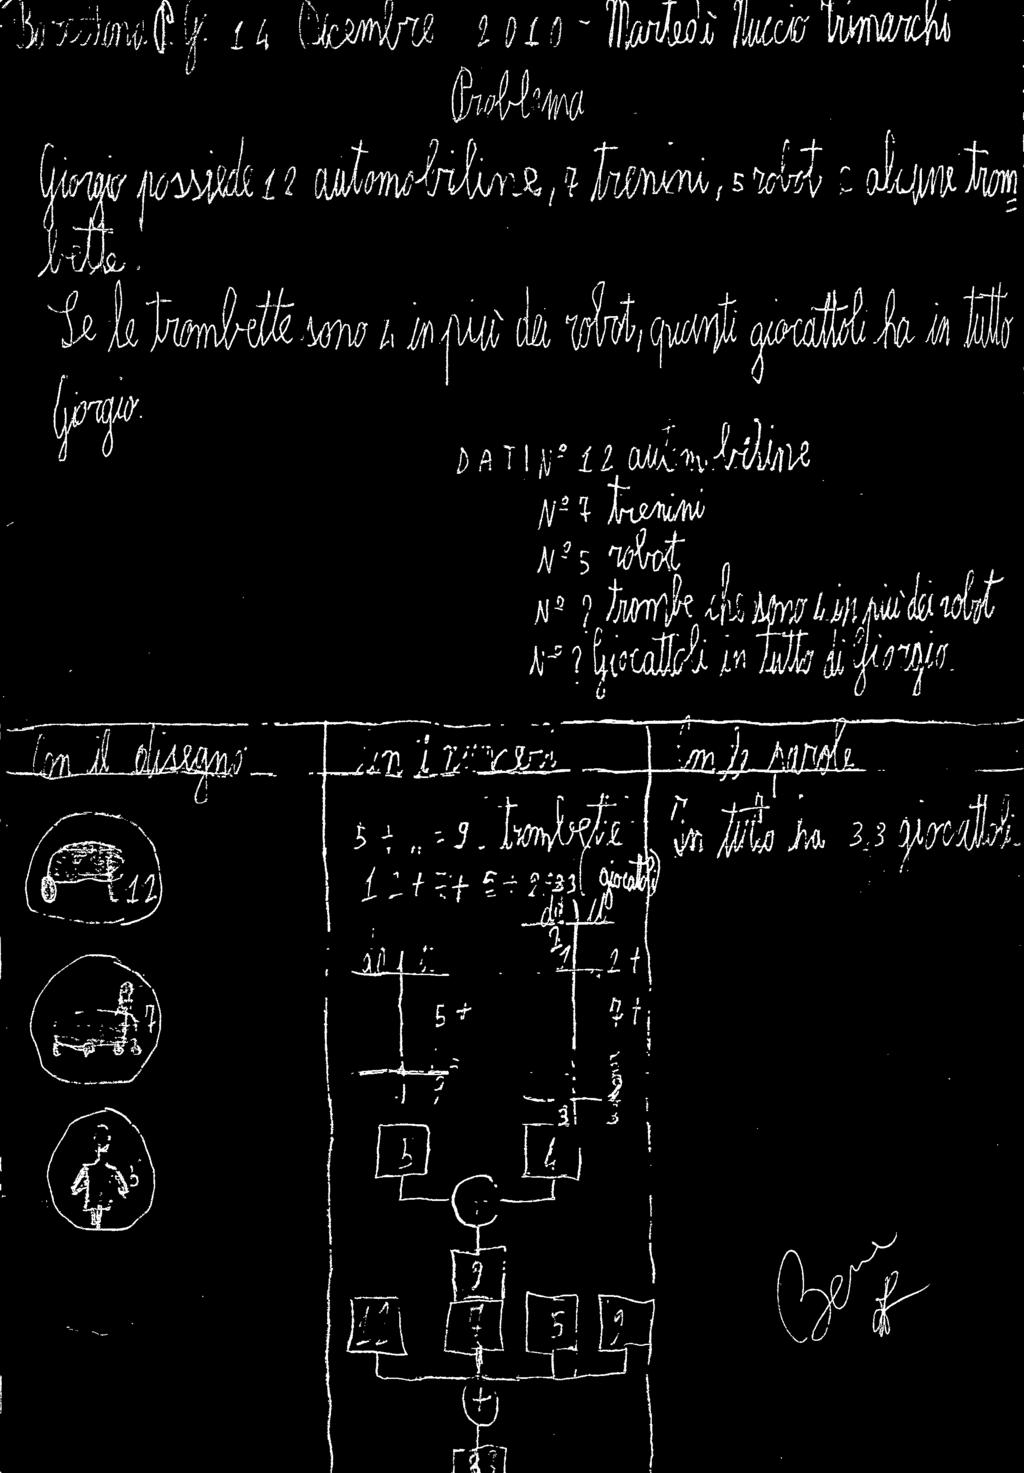 Barcellona P.G. 14 Dicembre 2010 - Martedì Nuccio Trimarchi
Problema
Giorgio possiede 12 automobiline, 7 trenini, 5 robot e alcune trom=
bette.
Se le trombette sono 4 in più dei robot, quanti giocattoli ha in tutto
Giorgio.
DATI Nº 12 automobiline
Nº 7 trenini
Nº 5 robot
Nº ? trombe che sono 4 in più dei robot
Nº ? Giocattoli in tutto di Giorgio.
Con il disegno
Con i numeri
Con le parole
12
7
5
5 + = 9 trombette
12 + 7 + 5 + 9 = 33 (giocattoli)
da u
2
1 2 +
5 +
7 +
3 3
5 4
9
12 7 5 9
+
33
In tutto ha 33 giocattoli.
Bene